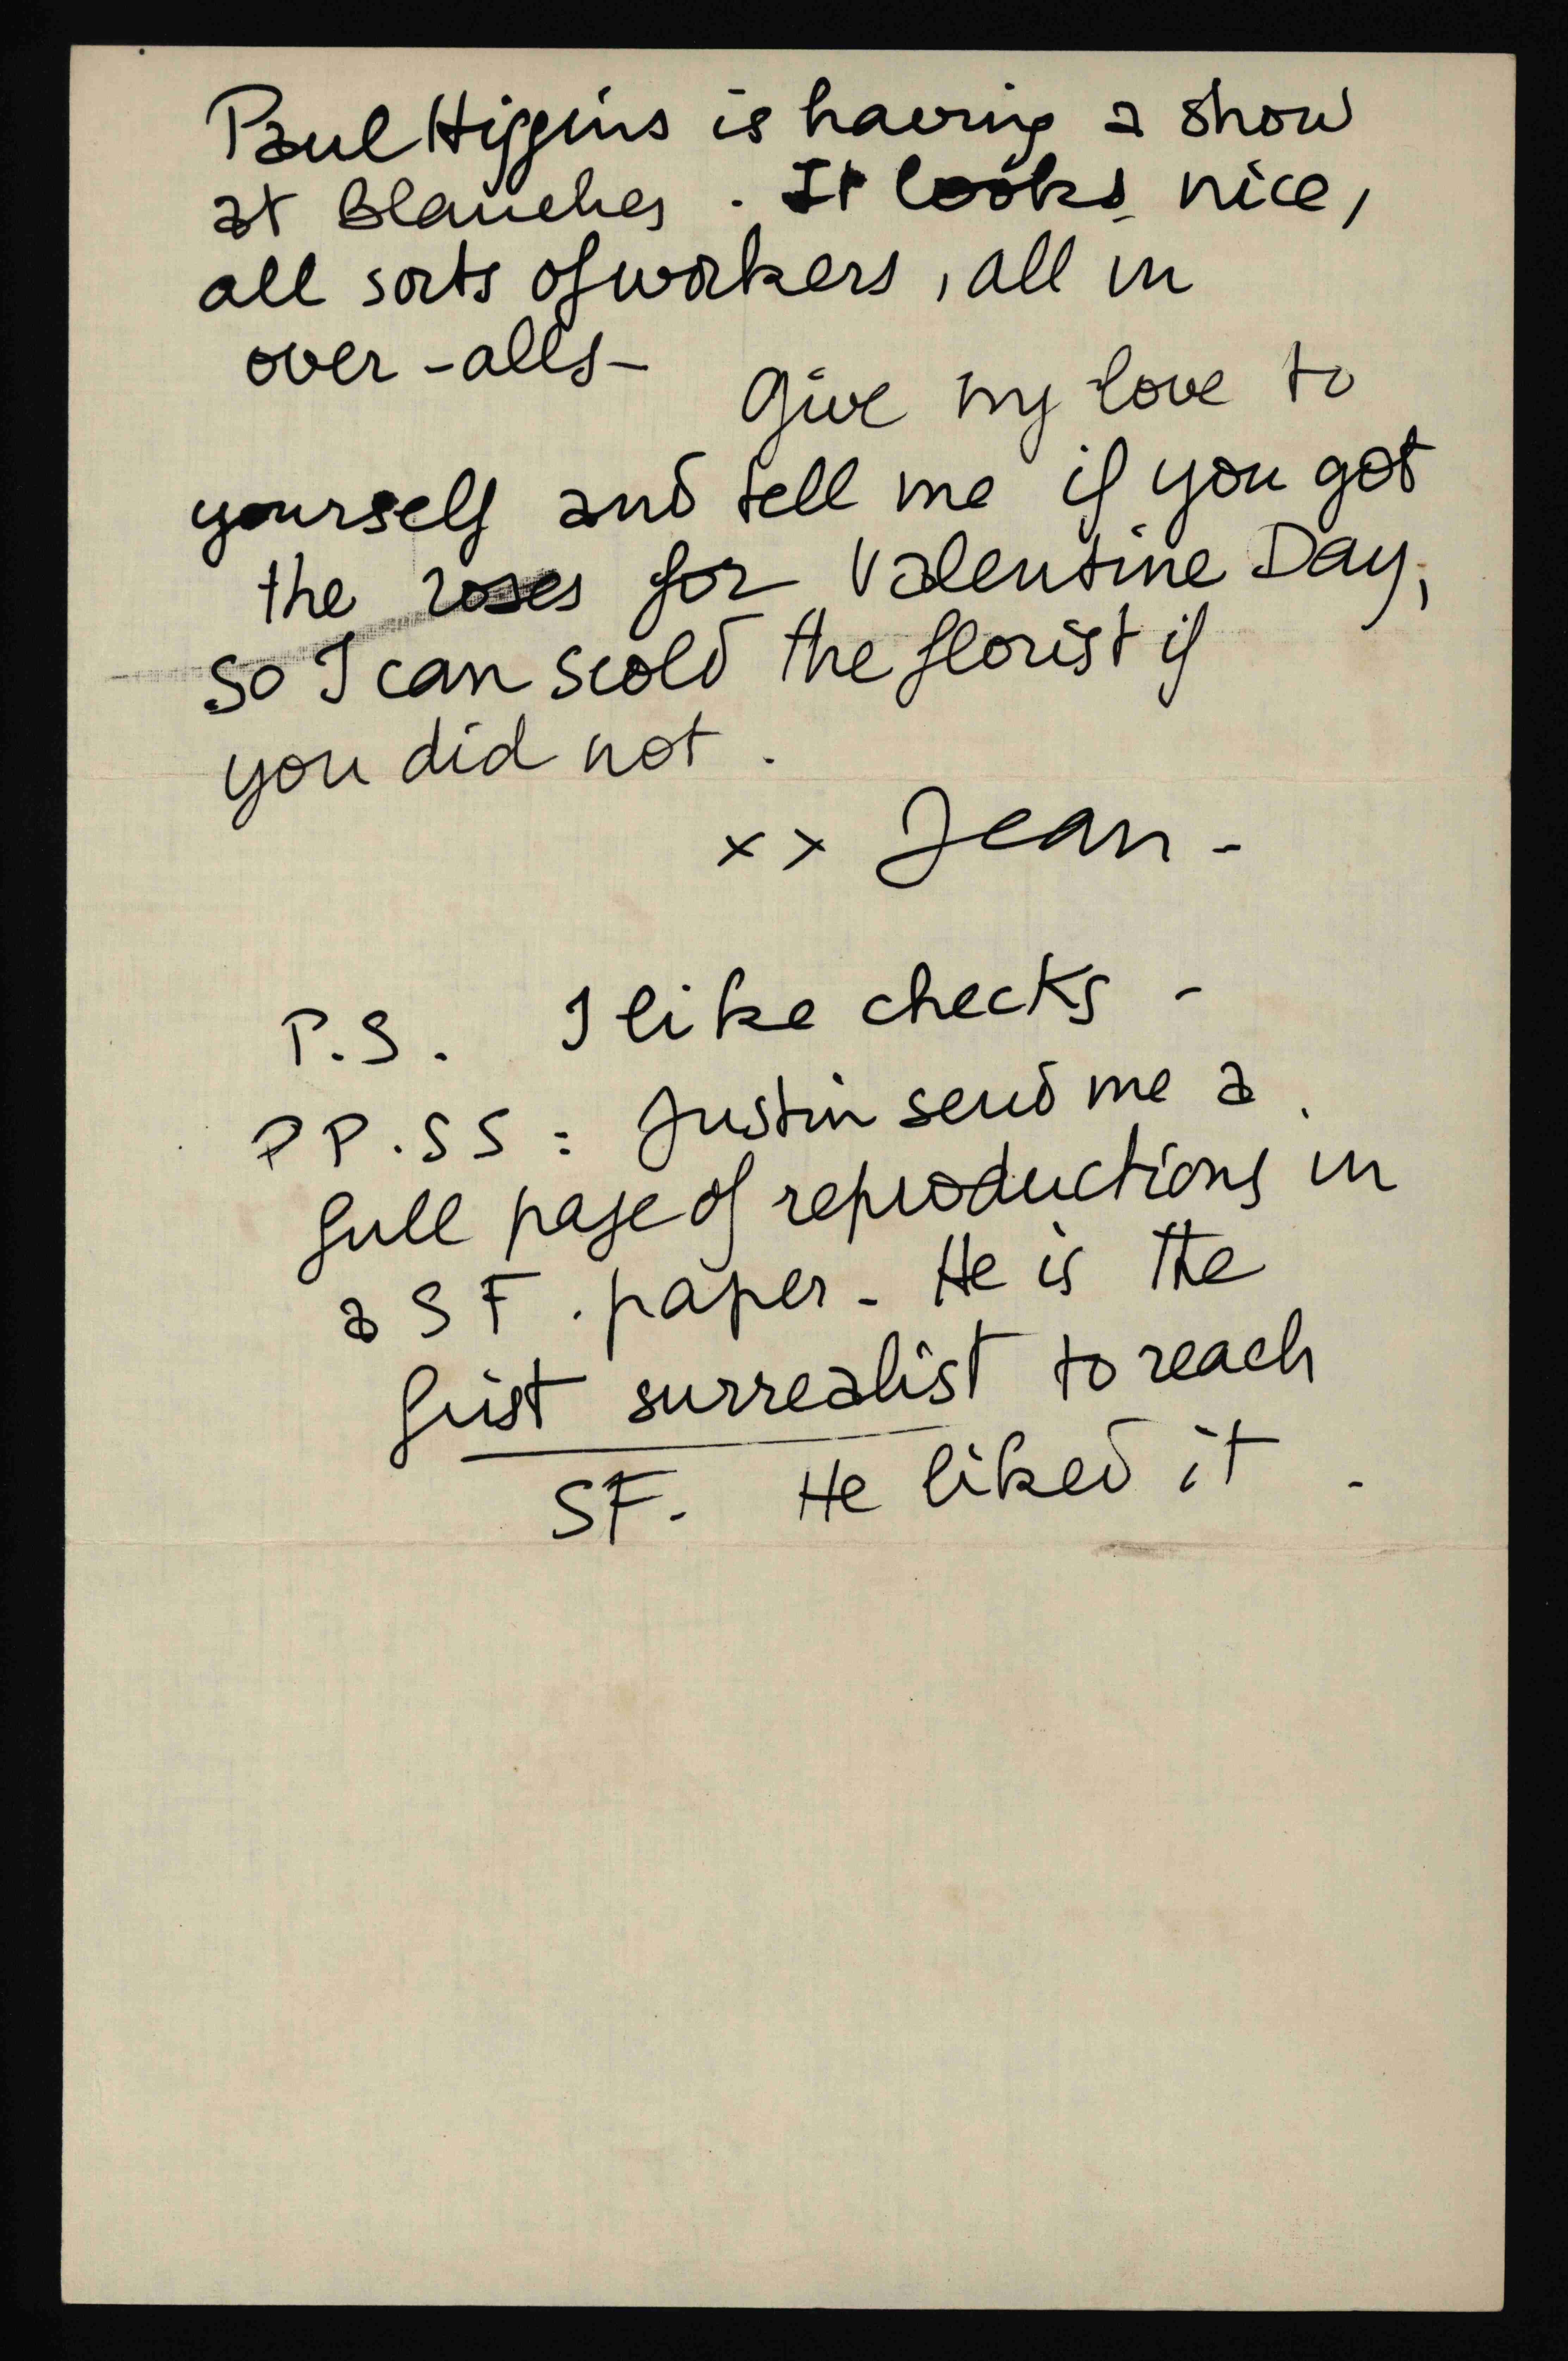 Paul Higgins is having a show
at Blanches. It looks nice,
all sorts of workers, all in
over-alls-
Give my love to
yourself and tell me if you got
the roses for Valentine Day,
so I can scold the florist if
you did not.
xx Jean -
P.S. I like checks -
PP.SS: Justin send me a
full page of reproductions in
a SF. paper - He is the
first surrealist to reach
SF. He liked it.